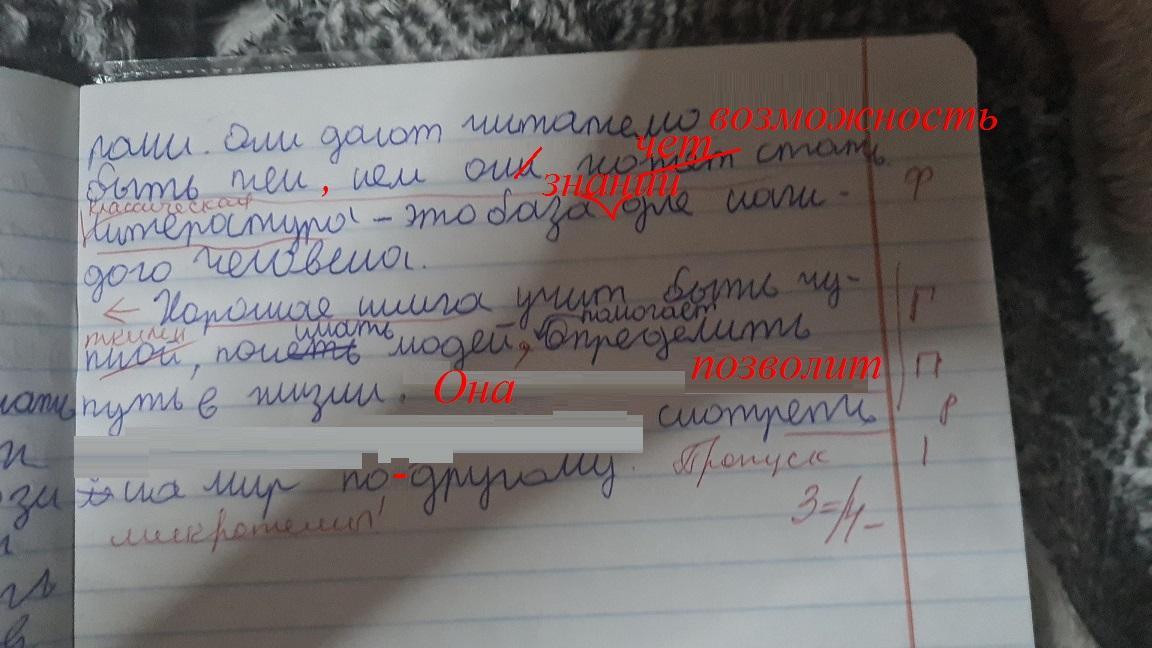 рами. Они дают читателю возможность
чет
быть тем, кем он хотят стать.
знаний
классическая
Литература – это база для каж-
дого человека.
← Хорошая книга учит быть чу-
ткими имать помогает
ткой, понеть людей, определить
путь в жизни. Она позволит
смотреть
на мир по-другому. Пропуск
микротемы!
3=/4-
Ф
Г
П
Р
1